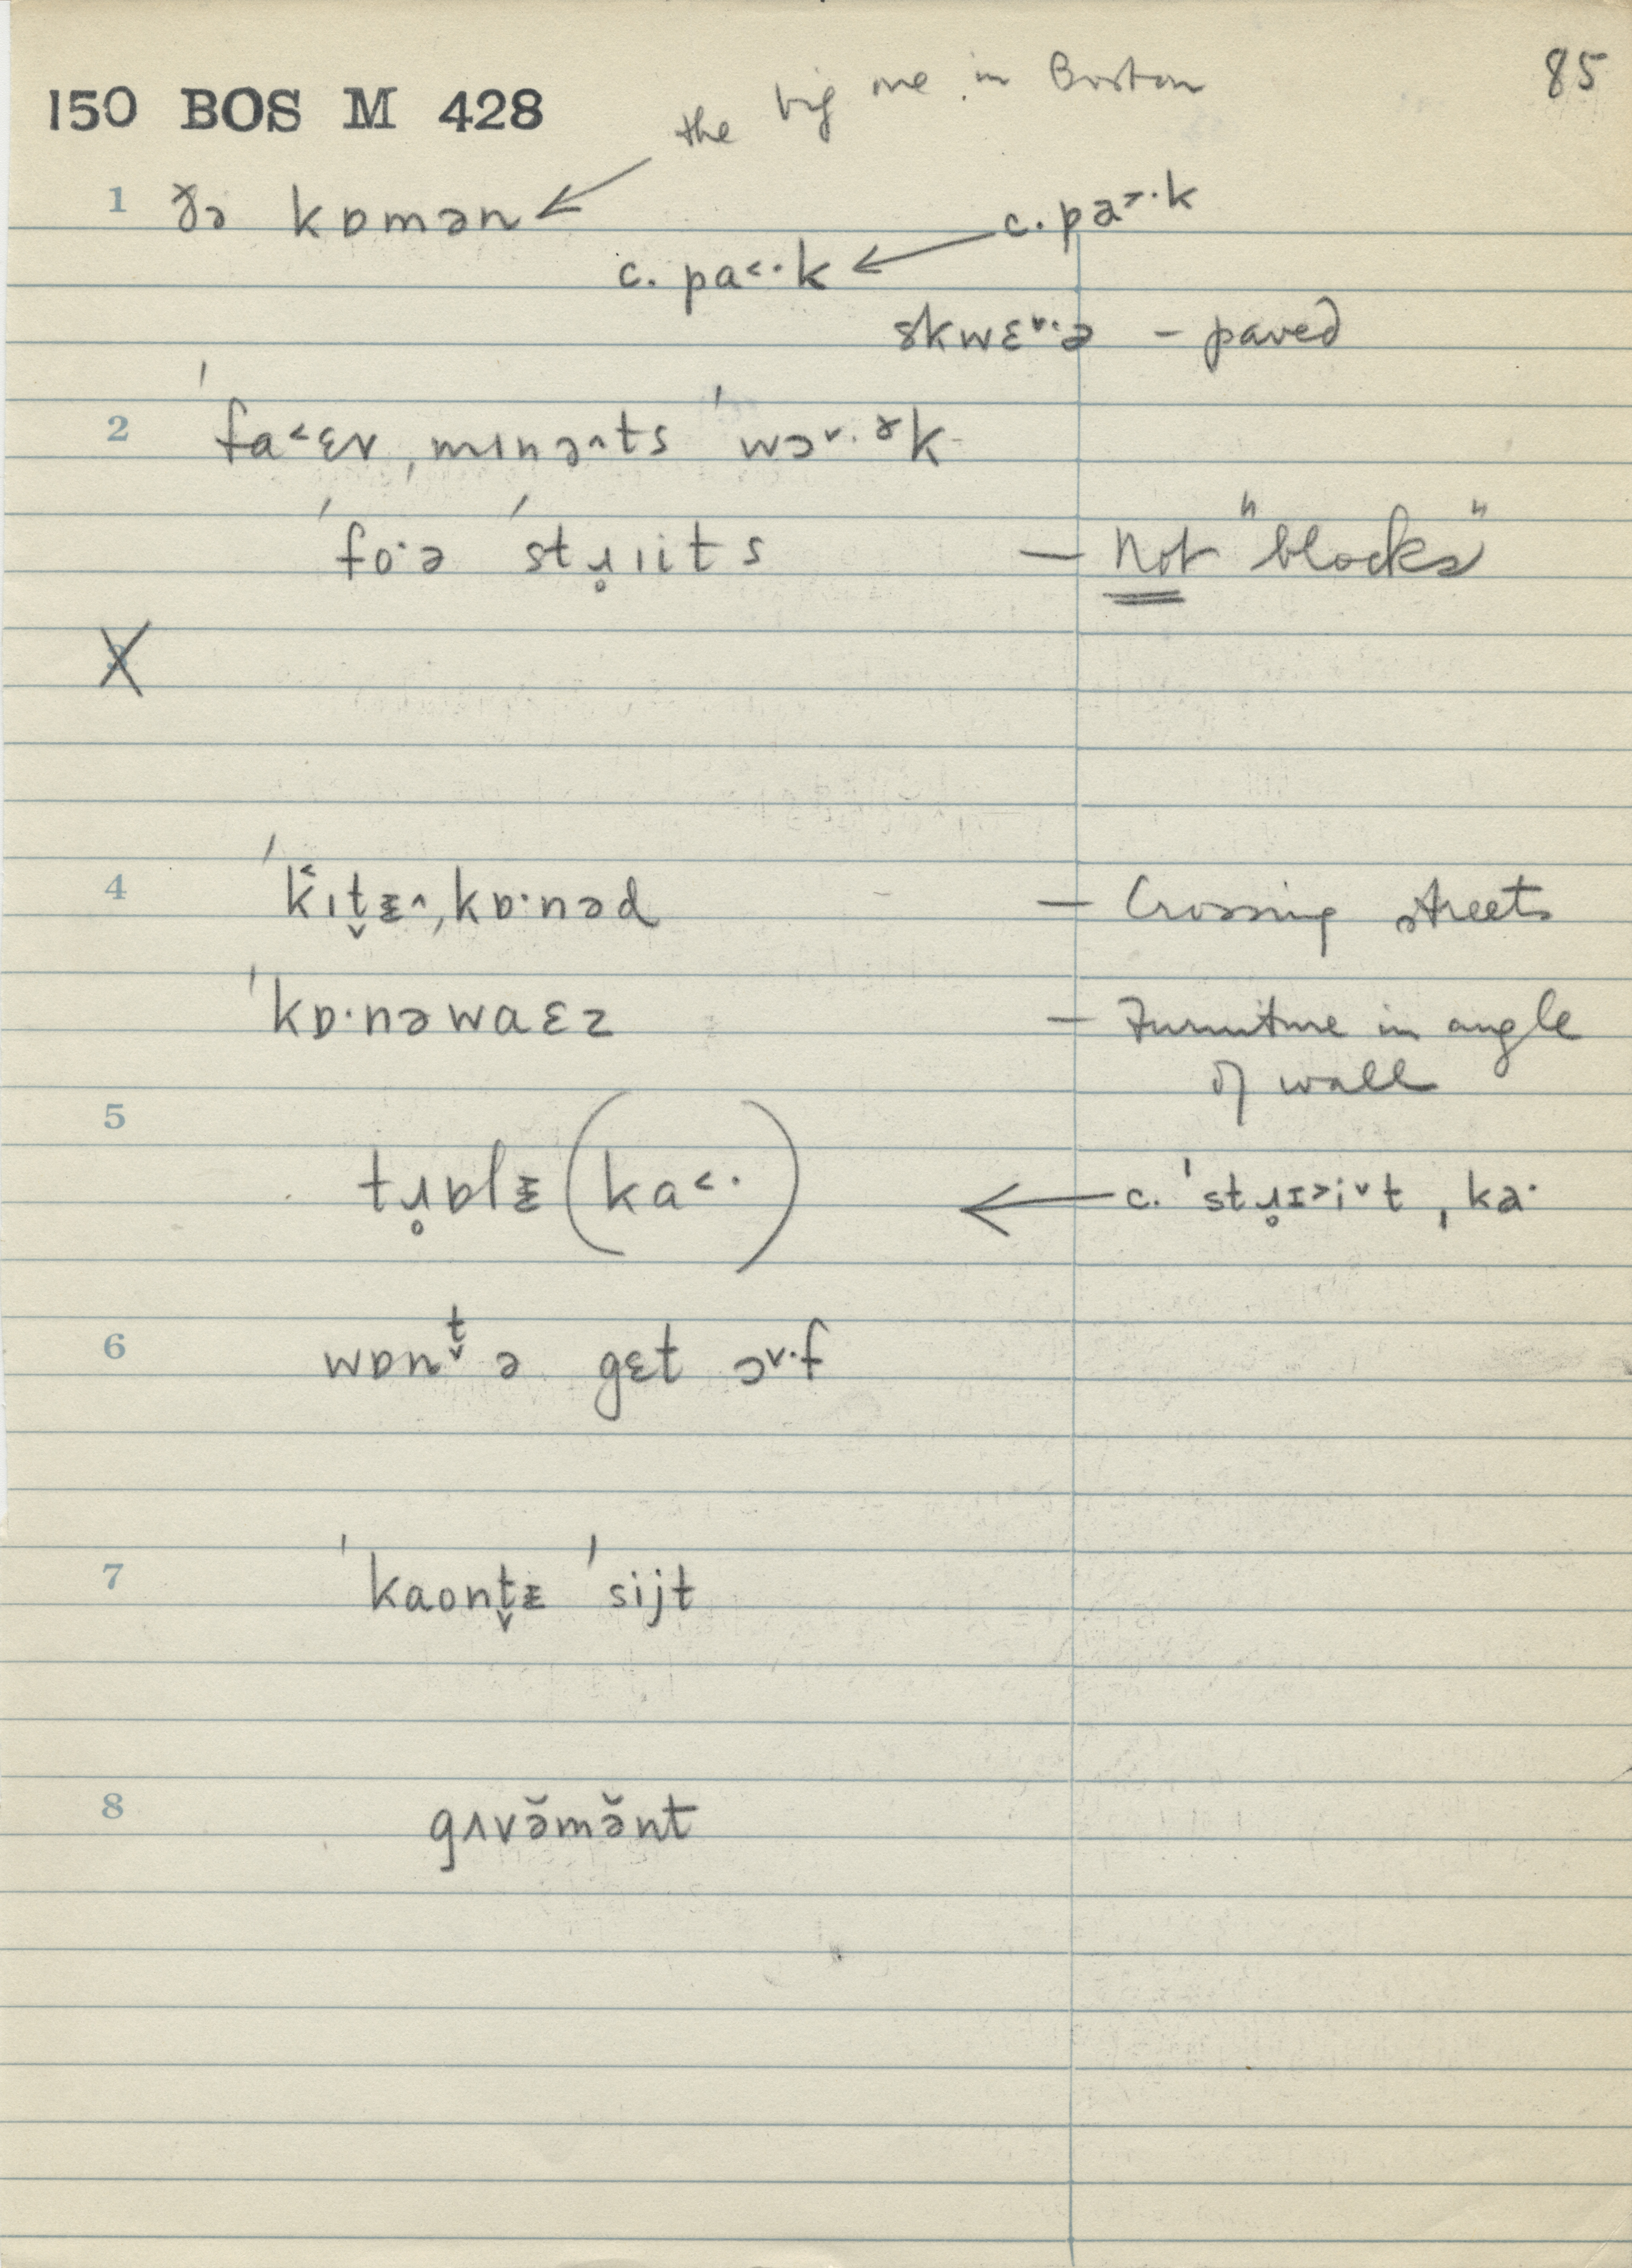 the big one in Boston 85
150 BOS M 428
1 ðə kɒmən c. pa˃·k
c. pa˂·k
skwɛ˅·ə – paved
2 ˈfa˂ɛv ˌmɪnə˄ts ˈwɔ˅·ɚk
ˈfo·ə ˈstɹ̥ɪits — Not "blocks"
4 ˈk˂ɪt̬ᵻ˄ˌkɒ·nəd — Crossing streets
ˈkɒ·nəwaɛz — Furniture in angle
of wall
5
tɹ̥ɒlᵻ (ka˂·) c. ˈstɹ̥ɪ˃i˅t ˌka·
6 wɒnt̬ ə gɛt ɔ˅·f
7 ˈkaont̬ᵻ ˈsijt
8 gʌvə̆mə̆nt